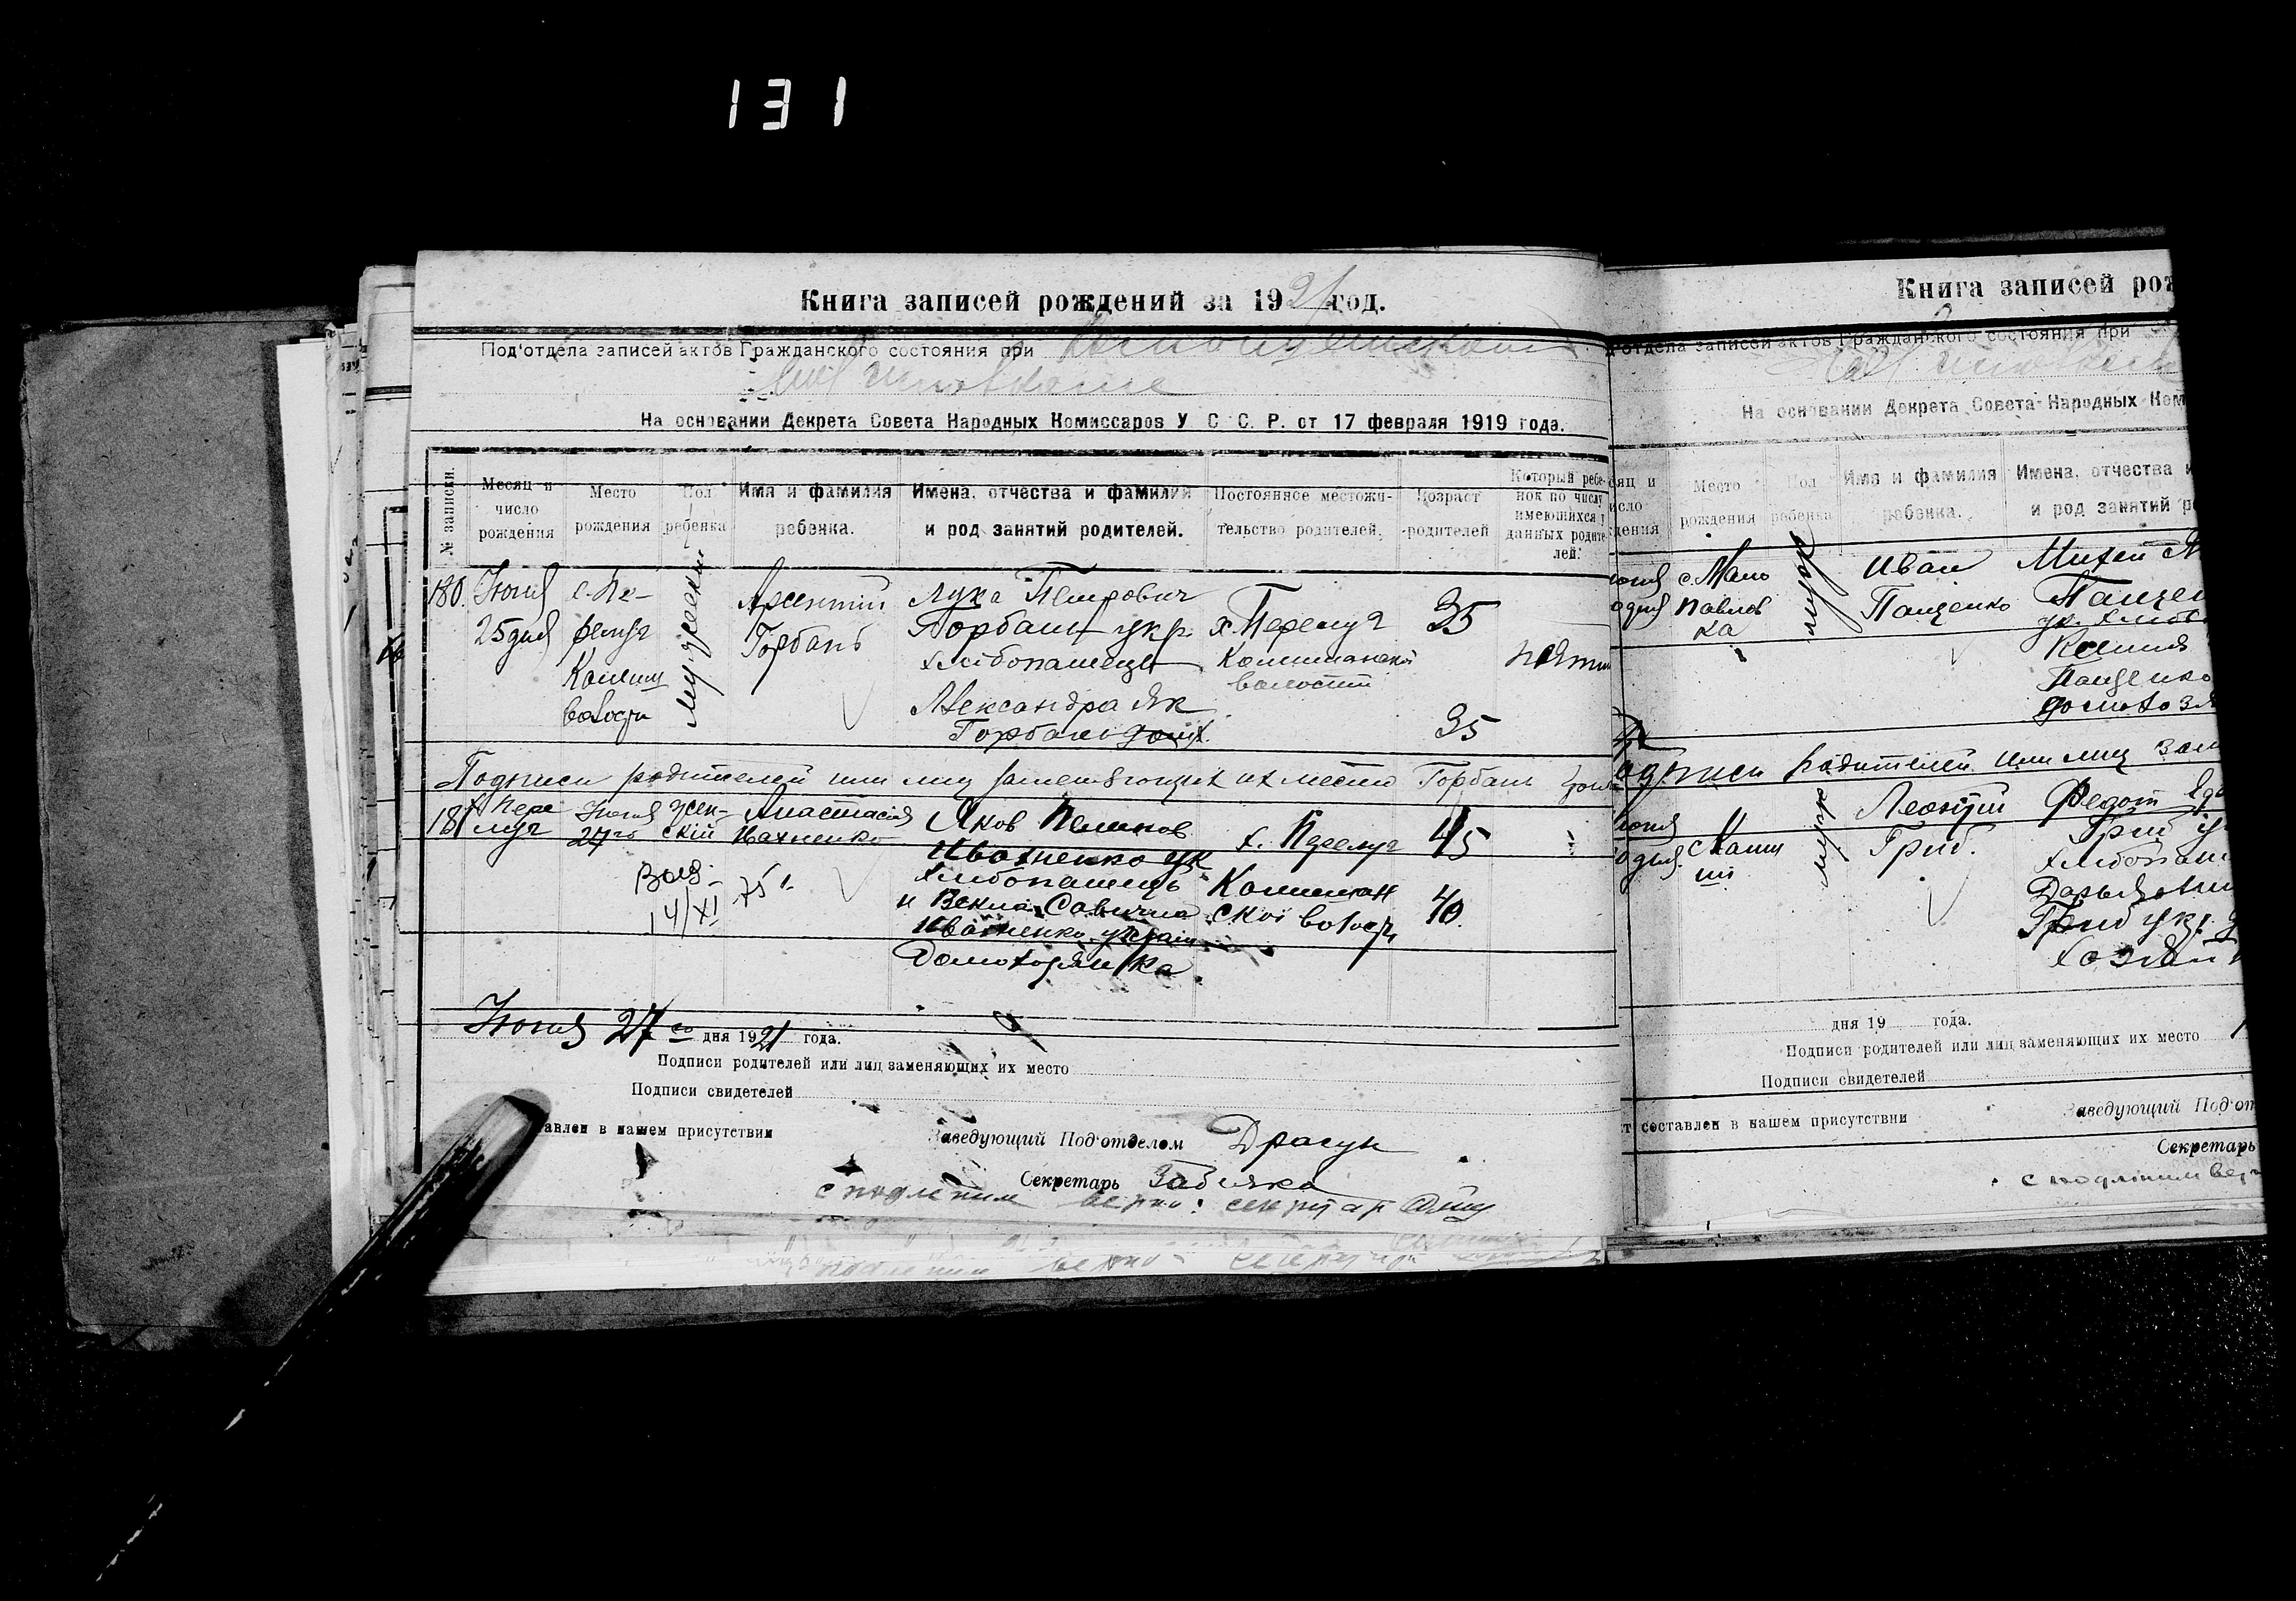 131
Книга записей рождений за 1921 год.
Под'отдела записей актов Гражданского состояния при
На основании Декрета Совета Народных Комиссаров У С. С. Р. от 17 февраля 1919 года.
№ записи.
Месяц и число рождения
Место рождения
Пол ребенка
Имя и фамилия ребенка.
Имена, отчества и фамилии и род занятий родителей.
Постоянное местожительство родителей.
Возраст родителей
Который ребенок по числу имеющихся у данных родителей.
180.
Июня
25 дня
с. Пе-
релуг
Камыш
волости
мужеский
Арсентий
Горбань
Лука Петрович
Горбань укр.
хлібопашець
Александра Як
Горбань домх.
х. Перелуг
Комишанской
волости
35
35
пят
Подписи родителей или лиц заменяющих их место Горбань
181
Пере
луг
Июня
27го
жен-
скій
Анастасія
Ивахненко
Воз.
14/XI 75 г.
Яков
Ивахненко ук
хлибопашець
и Векла Савична
Ивахненко украин
Домохозяйка
х. Перелуг
Комишан
ской волости
45
40.
Июня 27го дня 1921 года.
Подписи родителей или лиц заменяющих их место
Подписи свидетелей
авлен в нашем присутствии
Заведующий Под'отделом
Секретарь Забияка
с подлиним верно: секретар
Книга записей рож
отдела записей актов Гражданского состояния при
На основании Декрета Совета Народных Ком
яц и
исло
дения
Место рождения
Пол ребенка
Имя и фамилия ребенка.
Имена, отчества и
и род занятий р
юня
одня
с. Мало
павлов
ка
муж
Иван
Пащенко
Михей
Пащен
ук. хлиб
Ксения
Пащенко
домохозя
одписи родителей или лиц зам
юня
одня
Камыш
муж
Леонтій
Гриб.
Федот
Гриб
хлибопаш
Дарья
Гриб укр.
хозяй
дня 19 года.
Подписи родителей или лиц заменяющих их место
Подписи свидетелей
т составлен в нашем присутствии
Заведующий Под'от
Секретарь
с подлиним вер